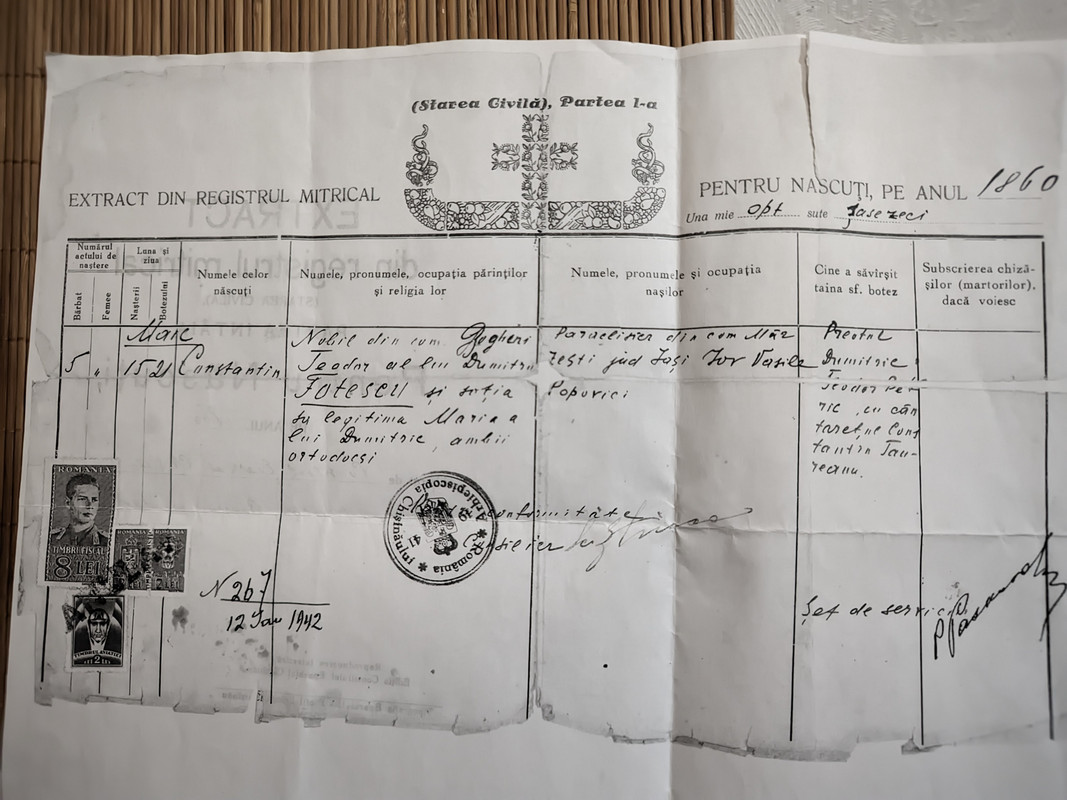 (Starea Civilă), Partea I-a
EXTRACT DIN REGISTRUL MITRICAL
PENTRU NASCUȚI, PE ANUL 1860
Una mie opt sute șasezeci
Numărul actului de naștere
Bărbat
Femee
Luna și ziua
Nașterii
Botezului
Numele celor născuți
Numele, pronumele, ocupația părinților și religia lor
Numele, pronumele și ocupația nașilor
Cine a săvîrșit taina sf. botez
Subscrierea chizășilor (martorilor), dacă voiesc
Maie
5 " 15 21 Constantin
Nobil din com. Gogheni
Teodor al lui Dumitru
FOTESCU și soția
sa legitima Maria a
lui Dumitrie, ambii
ortodocși
Paraclisier din com Măr
zești jud Iași Ior Vasile
Popovici
Preotul
Dumitrie
Teodor Pe
tric, cu cân
tarețul Cons
tantin Tau-
reanu.
conformitate
Consilier
România
Arhiepiscopia Chișinăului
41
ROMANIA
TIMBRU FISCAL
8 LEI
ROMANIA
ROMANIA
2 LEI
TIMBRUL AVIAȚIEI
LEI 2 LEI
N 267
12 Ian 1942
Șef de serviciu